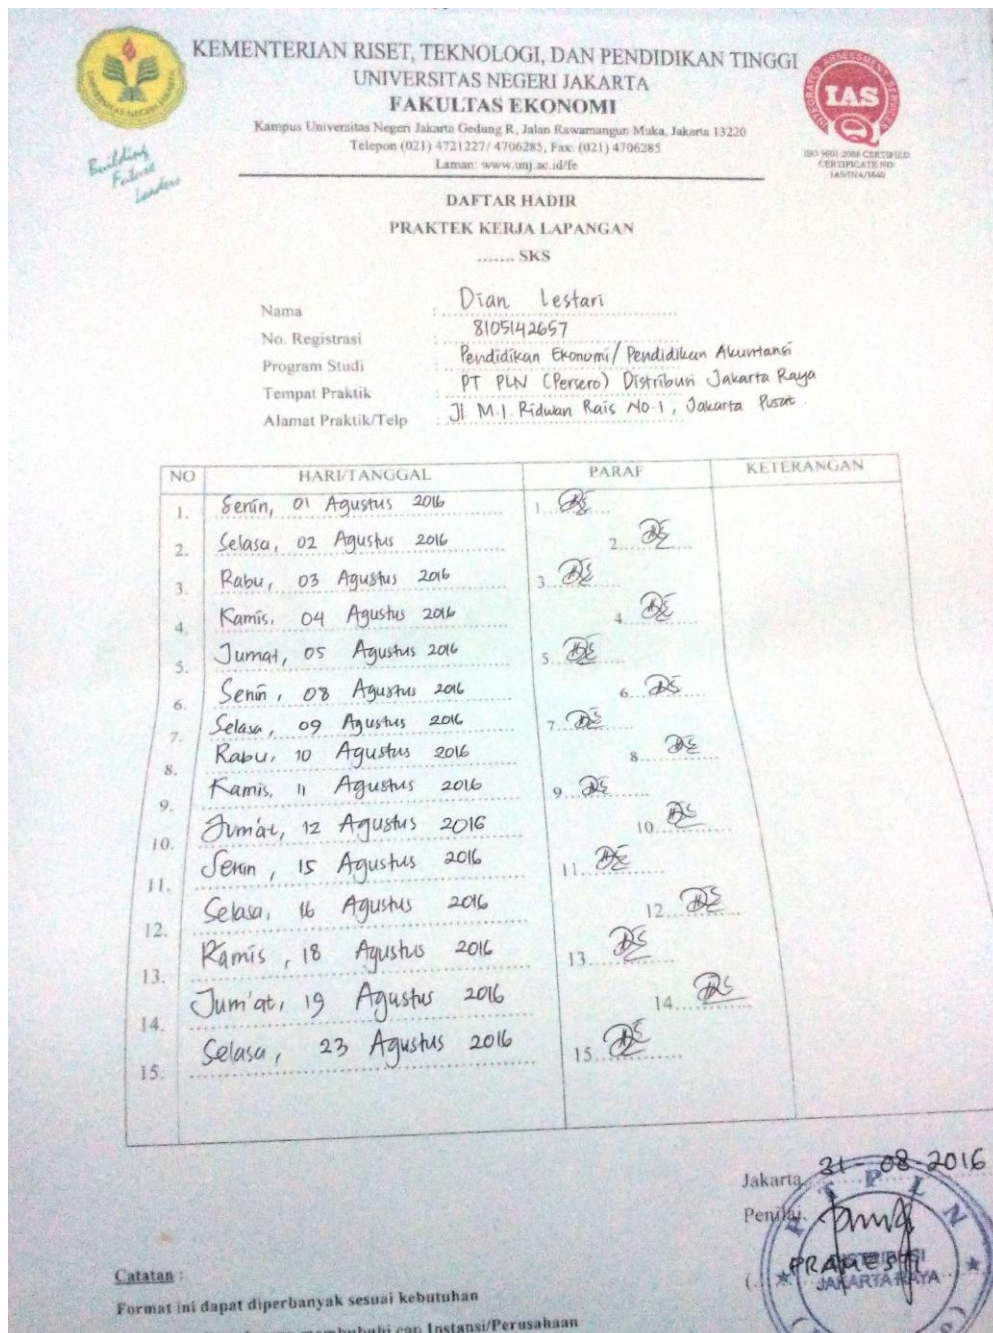 KEMENTERIAN RISET, TEKNOLOGI, DAN PENDIDIKAN TINGGI
UNIVERSITAS NEGERI JAKARTA
FAKULTAS EKONOMI
Kampus Universitas Negeri Jakarta Gedung R, Jalan Rawamangun Muka, Jakarta 13220
Telepon (021) 4721227/ 4706285, Fax: (021) 4706285
Laman: www.unj.ac.id/fe
UNIVERSITAS NEGERI JAKARTA
Building
Future
Leaders
INTEGRATED ASSESSMENT SERVICES
IAS
ISO 9001:2008 CERTIFIED
CERTIFICATE NO:
DAFTAR HADIR
PRAKTEK KERJA LAPANGAN
....... SKS
Nama : Dian Lestari
No. Registrasi : 8105142657
Program Studi : Pendidikan Ekonomi/ Pendidikan Akuntansi
Tempat Praktik : PT PLN (Persero) Distribusi Jakarta Raya
Alamat Praktik/Telp : Jl. M.I. Ridwan Rais No.1, Jakarta Pusat.
NO HARI/TANGGAL PARAF KETERANGAN
1. Senin, 01 Agustus 2016 1.
2. Selasa, 02 Agustus 2016 2.
3. Rabu, 03 Agustus 2016 3.
4. Kamis, 04 Agustus 2016 4.
5. Jumat, 05 Agustus 2016 5.
6. Senin, 08 Agustus 2016 6.
7. Selasa, 09 Agustus 2016 7.
8. Rabu, 10 Agustus 2016 8.
9. Kamis, 11 Agustus 2016 9.
10. Jum'at, 12 Agustus 2016 10.
11. Senin, 15 Agustus 2016 11.
12. Selasa, 16 Agustus 2016 12.
13. Kamis, 18 Agustus 2016 13.
14. Jum'at, 19 Agustus 2016 14.
15. Selasa, 23 Agustus 2016 15.
Jakarta, 31-08-2016
Penilai,
PT PLN
DISTRIBUSI
JAKARTA RAYA
Catatan :
Format ini dapat diperbanyak sesuai kebutuhan
cap Instansi/Perusahaan